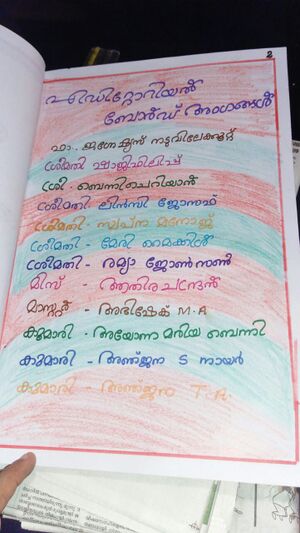 2
എഡിറ്റോറിയൽ
ബോർഡ് അംഗങ്ങൾ
ഫാ. ഇഗ്നേഷ്യസ് നടുവിലേക്കൂറ്റ്
ശ്രീമതി ഷാജിഫിലിപ്പ്
ശ്രീ - ബെന്നിചെറിയാൻ
ശ്രീമതി ലിൻസി ജോസഫ്
ശ്രീമതി - സ്വപ്ന മനോജ്
ശ്രീമതി - മേരി മൈക്കിൾ
ശ്രീമതി - രമ്യാ ജോൺസൺ
മിസ് - ആതിര ചന്ദ്രൻ
മാസ്റ്റർ - അഭിഷേക് M.A
കുമാരി - അയോന മരിയ ബെന്നി
കുമാരി - അഞ്ജന S നായർ
കുമാരി - അഞ്ജന T.A.